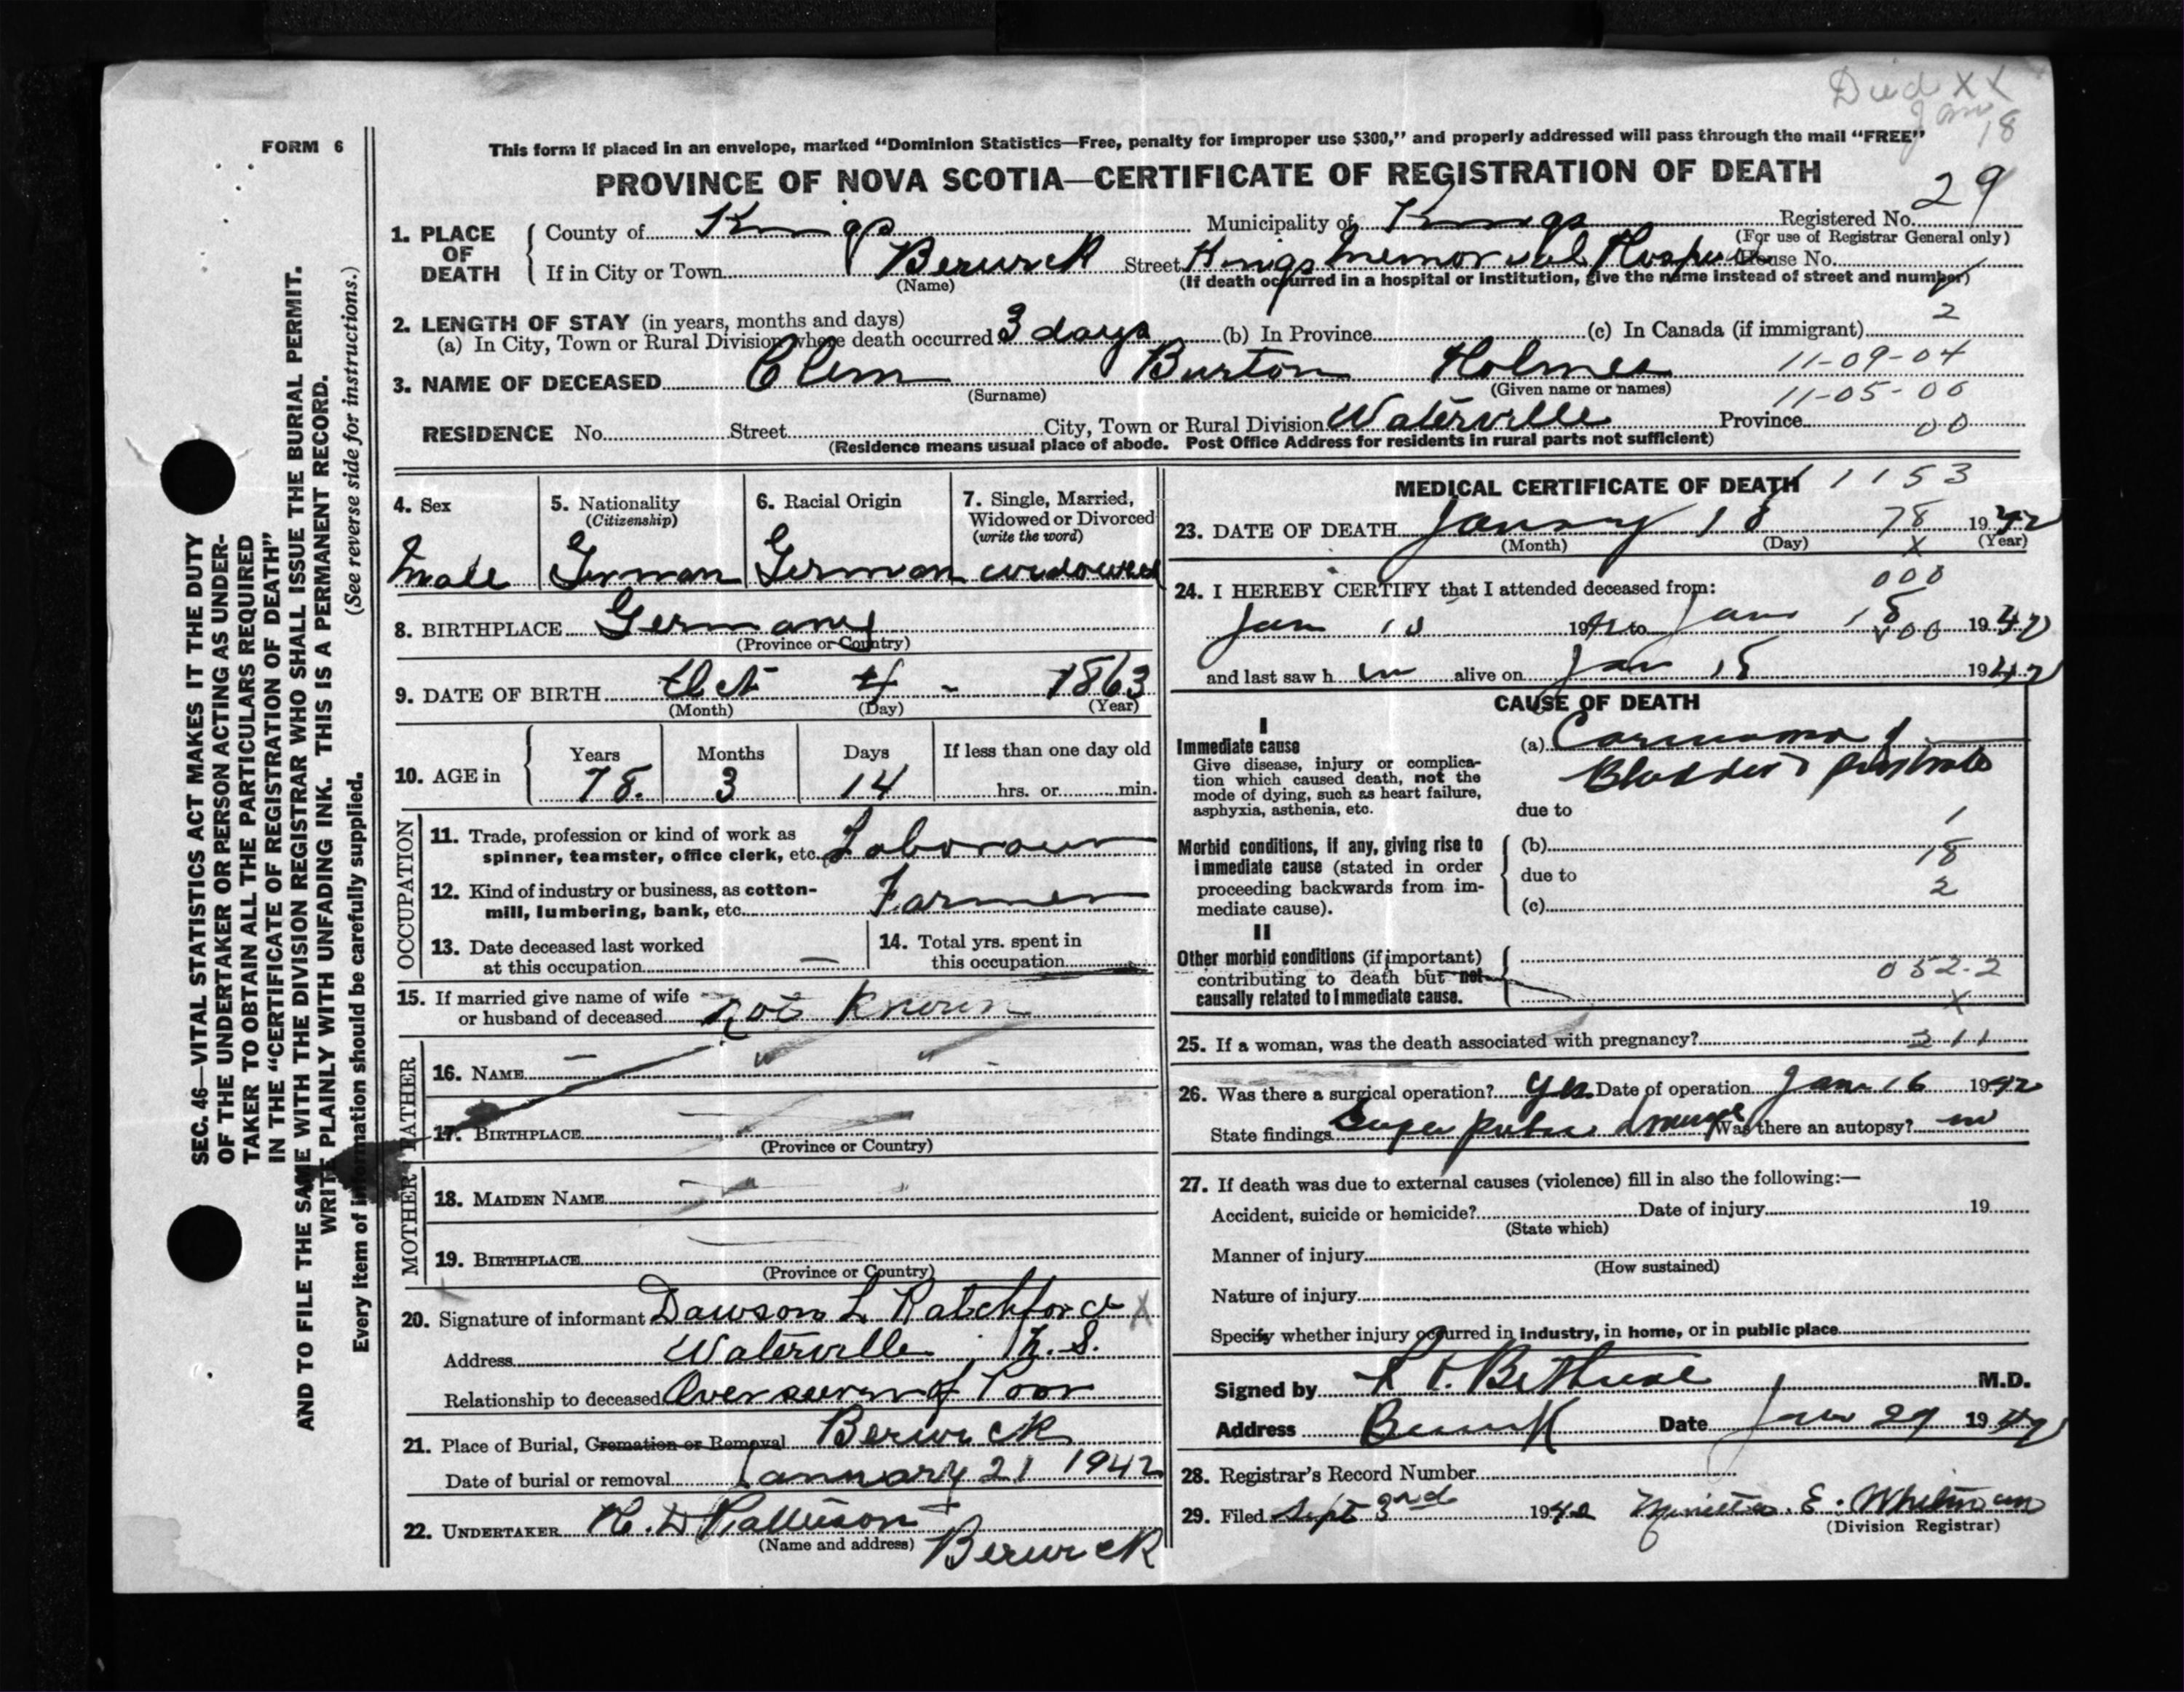 Died XX
Jan 18
FORM 6
This form if placed in an envelope, marked "Dominion Statistics—Free, penalty for improper use $300," and properly addressed will pass through the mail "FREE"
PROVINCE OF NOVA SCOTIA—CERTIFICATE OF REGISTRATION OF DEATH
29
1. PLACE OF DEATH
County of Kings Municipality of Kings Registered No.
(For use of Registrar General only)
If in City or Town Berwick Street Kings Memorial Hospital House No.
(Name) (If death occurred in a hospital or institution, give the name instead of street and number)
2. LENGTH OF STAY (in years, months and days) 2
(a) In City, Town or Rural Division where death occurred 3 days (b) In Province (c) In Canada (if immigrant)
11-09-04
3. NAME OF DECEASED Clem Burton Holmes
(Surname) (Given name or names) 11-05-00
RESIDENCE No. Street City, Town or Rural Division Waterville Province 00
(Residence means usual place of abode. Post Office Address for residents in rural parts not sufficient)
SEC. 46—VITAL STATISTICS ACT MAKES IT THE DUTY
OF THE UNDERTAKER OR PERSON ACTING AS UNDER-
TAKER TO OBTAIN ALL THE PARTICULARS REQUIRED
IN THE "CERTIFICATE OF REGISTRATION OF DEATH"
AND TO FILE THE SAME WITH THE DIVISION REGISTRAR WHO SHALL ISSUE THE BURIAL PERMIT.
WRITE PLAINLY WITH UNFADING INK. THIS IS A PERMANENT RECORD.
Every item of information should be carefully supplied. (See reverse side for instructions.)
4. Sex
Male
5. Nationality
(Citizenship)
German
6. Racial Origin
German
7. Single, Married,
Widowed or Divorced
(write the word)
widowed
8. BIRTHPLACE Germany
(Province or Country)
9. DATE OF BIRTH Oct 4 - 1863
(Month) (Day) (Year)
10. AGE in
Years Months Days If less than one day old
78. 3 14 hrs. or min.
OCCUPATION
11. Trade, profession or kind of work as
spinner, teamster, office clerk, etc. Labourer
12. Kind of industry or business, as cotton-
mill, lumbering, bank, etc. Farmer
13. Date deceased last worked
at this occupation —
14. Total yrs. spent in
this occupation
15. If married give name of wife
or husband of deceased not known
FATHER
16. NAME
17. BIRTHPLACE
(Province or Country)
MOTHER
18. MAIDEN NAME
19. BIRTHPLACE
(Province or Country)
20. Signature of informant Dawson L Ratchford X
Address Waterville N. S.
Relationship to deceased Overseer of Poor
21. Place of Burial, Cremation or Removal Berwick
Date of burial or removal January 21 1942
22. UNDERTAKER
(Name and address) Berwick
MEDICAL CERTIFICATE OF DEATH 1153
23. DATE OF DEATH January 18 78 1942
(Month) (Day) X (Year)
24. I HEREBY CERTIFY that I attended deceased from: 000
Jan 1942 to Jan 18 1942
and last saw h im alive on Jan 18 1942
CAUSE OF DEATH
I
Immediate cause
Give disease, injury or complica-
tion which caused death, not the
mode of dying, such as heart failure,
asphyxia, asthenia, etc.
(a) Carcinoma of
Bladder & prostate
due to 1
Morbid conditions, if any, giving rise to
immediate cause (stated in order
proceeding backwards from im-
mediate cause).
(b) 18
due to 2
(c)
II
Other morbid conditions (if important)
contributing to death but not
causally related to immediate cause.
052-2
X
25. If a woman, was the death associated with pregnancy? 211
26. Was there a surgical operation? Yes Date of operation Jan 16 1942
State findings Supra pubic drainage Was there an autopsy? no
27. If death was due to external causes (violence) fill in also the following:—
Accident, suicide or homicide? Date of injury 19
(State which)
Manner of injury
(How sustained)
Nature of injury
Specify whether injury occurred in industry, in home, or in public place
Signed by Bethune M.D.
Address Berwick Date Jan 29 1942
28. Registrar's Record Number
29. Filed Sept 3rd 1942 E. Whitman
(Division Registrar)